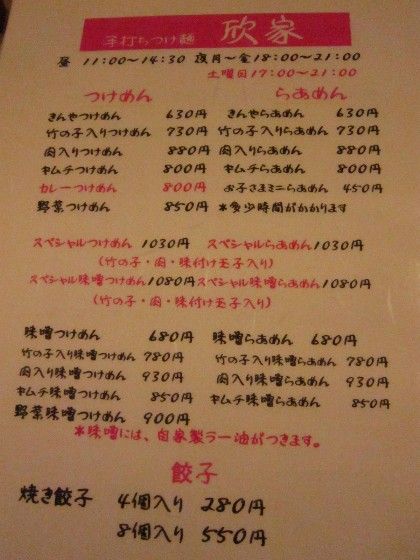 手打ちつけ麺 欣家
昼 11:00～14:30 夜月～金18:00～21:00
土曜日17:00～21:00
つけめん らあめん
きんやつけめん 630円 きんやらあめん 630円
竹の子入りつけめん 730円 竹の子入りらあめん 730円
肉入りつけめん 880円 肉入りらあめん 880円
キムチつけめん 800円 キムチらあめん 800円
カレーつけめん 800円 お子さまミニらあめん 450円
野菜つけめん 850円 *多少時間がかかります
スペシャルつけめん 1030円 スペシャルらあめん 1030円
(竹の子・肉・味付け玉子入り)
スペシャル味噌つけめん 1080円 スペシャル味噌らあめん 1080円
(竹の子・肉・味付け玉子入り)
味噌つけめん 680円 味噌らあめん 680円
竹の子入り味噌つけめん 780円 竹の子入り味噌らあめん 780円
肉入り味噌つけめん 930円 肉入り味噌らあめん 930円
キムチ味噌つけめん 850円 キムチ味噌らあめん 850円
野菜味噌つけめん 900円
*味噌には、自家製ラー油がつきます。
餃子
焼き餃子 4個入り 280円
8個入り 550円